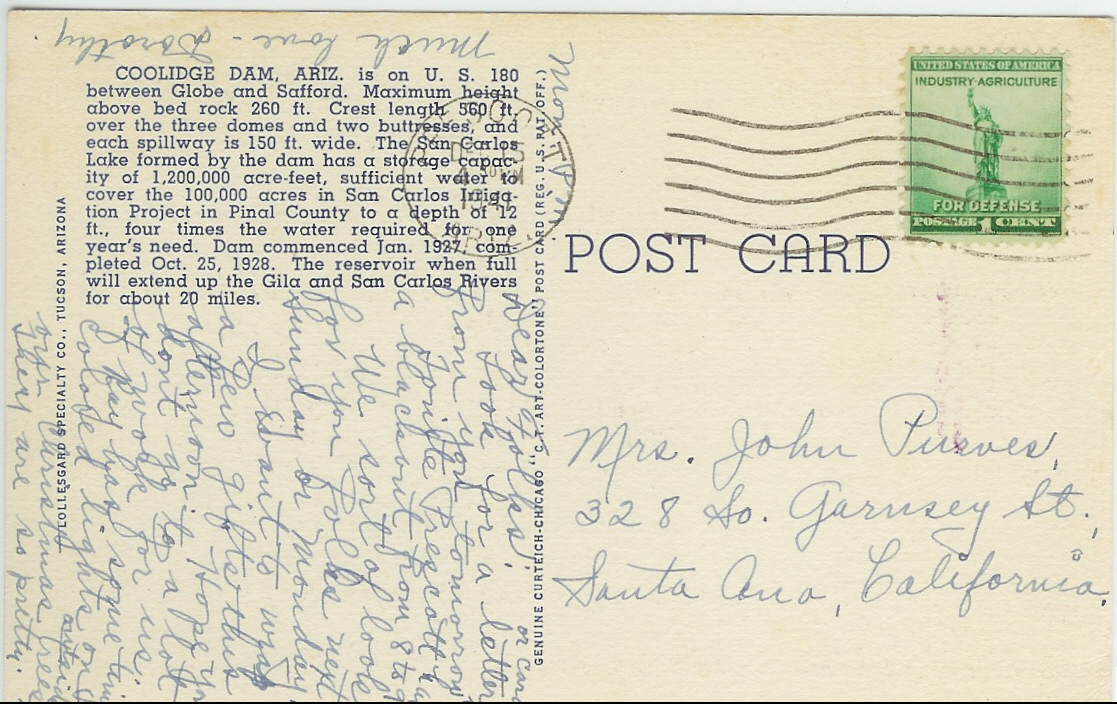 Much love - Dorothy
COOLIDGE DAM, ARIZ. is on U. S. 180
between Globe and Safford. Maximum height
above bed rock 260 ft. Crest length 560 ft.
over the three domes and two buttresses, and
each spillway is 150 ft. wide. The San Carlos
Lake formed by the dam has a storage capac-
ity of 1,200,000 acre-feet, sufficient water to
cover the 100,000 acres in San Carlos Irriga-
tion Project in Pinal County to a depth of 12
ft., four times the water required for one
year's need. Dam commenced Jan. 1927, com-
pleted Oct. 25, 1928. The reservoir when full
will extend up the Gila and San Carlos Rivers
for about 20 miles.
LOLLESGARD SPECIALTY CO., TUCSON, ARIZONA
GENUINE CURTEICH-CHICAGO "C.T. ART-COLORTONE" POST CARD (REG. U. S. PAT. OFF.)
Mon. P.M.
Dear Folks:
Look for a letter
or card
from you tomorrow
Tonite Prescott has
a blackout from 8 to 9
We sort of look
for you folks next
Sunday or Monday
I want to wrap
a few gifts this
afternoon. Hope you
don't go to a lot
of work for us.
Ray has some tiny
colored lights on
outside
our Christmas tree
They are so pretty.
PRESCOTT
DEC 15
ARIZ.
UNITED STATES OF AMERICA
INDUSTRY AGRICULTURE
FOR DEFENSE
POSTAGE 1 CENT
POST CARD
Mrs. John Purves,
328 So. Garnsey St.,
Santa Ana, California.